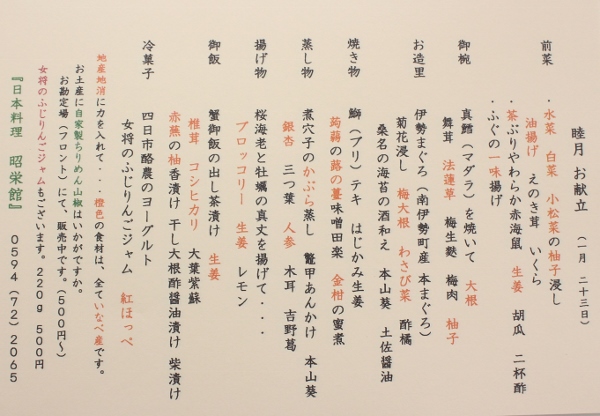 睦月 お献立 (一月 二十三日)
前菜
・水菜 白菜 小松菜の柚子浸し
油揚げ えのき茸 いくら
・茶ぶりやわらか赤海鼠 生姜 胡瓜 二杯酢
・ふぐの一味揚げ
御椀 真鱈(マダラ)を焼いて 大根
舞茸 法蓮草 梅生麩 梅肉 柚子
お造里 伊勢まぐろ(南伊勢町産 本まぐろ)
菊花浸し 梅大根 わさび菜 酢橘
桑名の海苔の酒和え 本山葵 土佐醤油
焼き物 鰤(ブリ)テキ はじかみ生姜
蒟蒻の蕗の薹味噌田楽 金柑の蜜煮
蒸し物 煮穴子のかぶら蒸し 鼈甲あんかけ 本山葵
銀杏 三つ葉 人参 木耳 吉野葛
揚げ物 桜海老と牡蠣の真丈を揚げて・・・
ブロッコリー 生姜 レモン
御飯 蟹御飯の出し茶漬け 生姜
椎茸 コシヒカリ 大葉紫蘇
赤蕪の柚香漬け 干し大根酢醤油漬け 柴漬け
冷菓子 四日市酪農のヨーグルト
女将のふじりんごジャム 紅ほっぺ
地産地消に力を入れて・・・橙色の食材は、全ていなべ産です。
お土産に自家製ちりめん山椒はいかがですか。
お勘定場(フロント)にて、販売中です。(500円〜)
女将のふじりんごジャムもございます。220g 500円
『日本料理 昭栄館』 0594(72)2065